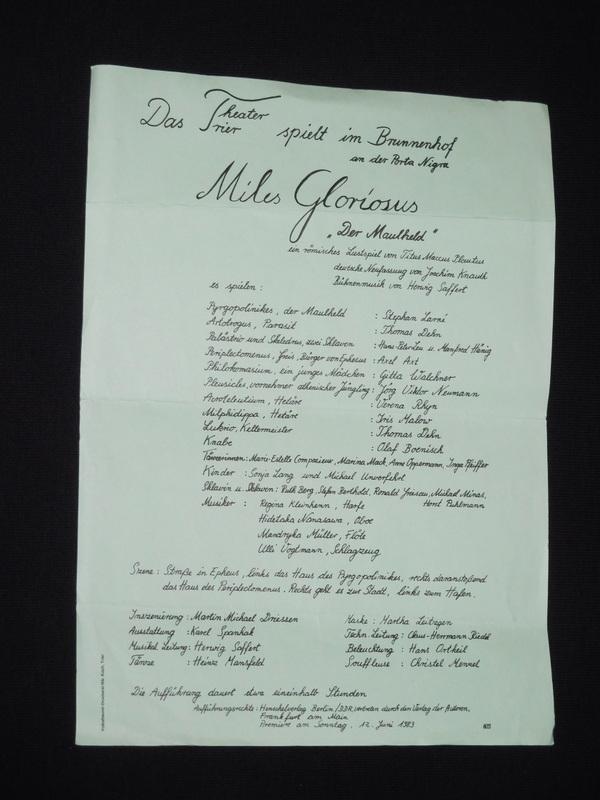 Das Theater Trier spielt im Brunnenhof
an der Porta Nigra
Miles Gloriosus
"Der Maulheld"
ein römisches Lustspiel von Titus Maccus Plautus
deutsche Neufassung von Joachim Knauth
Bühnenmusik von Herwig Saffert
es spielen :
Pyrgopolinikes, der Maulheld : Stephan Larni
Artotrogus, Parasit : Thomas Dehn
Palästrio und Skeledrus, zwei Sklaven : Hans-Peter Leu u. Manfred Hönig
Periplectomenus, Greis, Bürger von Ephesus : Axel Art
Philokomasium, ein junges Mädchen : Gitta Walchner
Pleusicles, vornehmer athenischer Jüngling : Jörg Viktor Neumann
Acroteleutium, Hetäre : Verena Rhyn
Milphidippa, Hetäre : Iris Malow
Lukrio, Kellermeister : Thomas Dehn
Knabe : Olaf Boenisch
Tänzerinnen : Marie-Estelle Compozieux, Marina Mack, Anne Oppermann, Inge Pfeiffer
Kinder : Sonja Lang und Michael Unverfehrt
Sklavin u. Sklaven : Ruth Berg, Stefan Berthold, Ronald Joreisau, Michael Minas,
Horst Puhlmann
Musiker : Regina Kleinhenn, Harfe
Hidetaka Nanasawa, Oboe
Mendryka Müller, Flöte
Ulli Vogtmann, Schlagzeug
Szene : Straße in Epheus, links das Haus des Pyrgopolinikes, rechts daranstoßend
das Haus des Periplectomenus. Rechts geht es zur Stadt, links zum Hafen.
Inszenierung : Martin Michael Driessen
Ausstattung : Karel Spanhak
Musikal. Leitung : Herwig Saffert
Tänze : Heinz Mansfeld
Maske : Martha Lutzgen
Techn. Leitung : Claus-Herrmann Riedel
Beleuchtung : Hans Ortheil
Souffleuse : Christel Mennel
Die Aufführung dauert etwa eineinhalb Stunden
Aufführungsrechte : Henschelverlag Berlin/DDR vertreten durch den Verlag der Autoren,
Frankfurt am Main
Premiere am Sonntag, 12. Juni 1983